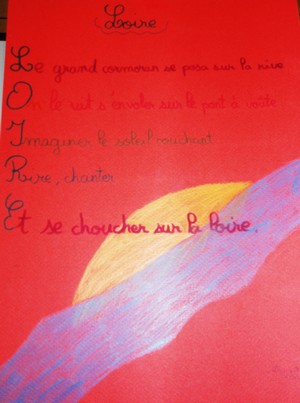 Loire
Le grand cormoran se posa sur la rive
On le vit s'envoler sur le pont à voûte
Imaginer le soleil couchant
Rire, chanter
Et se choucher sur la loire.